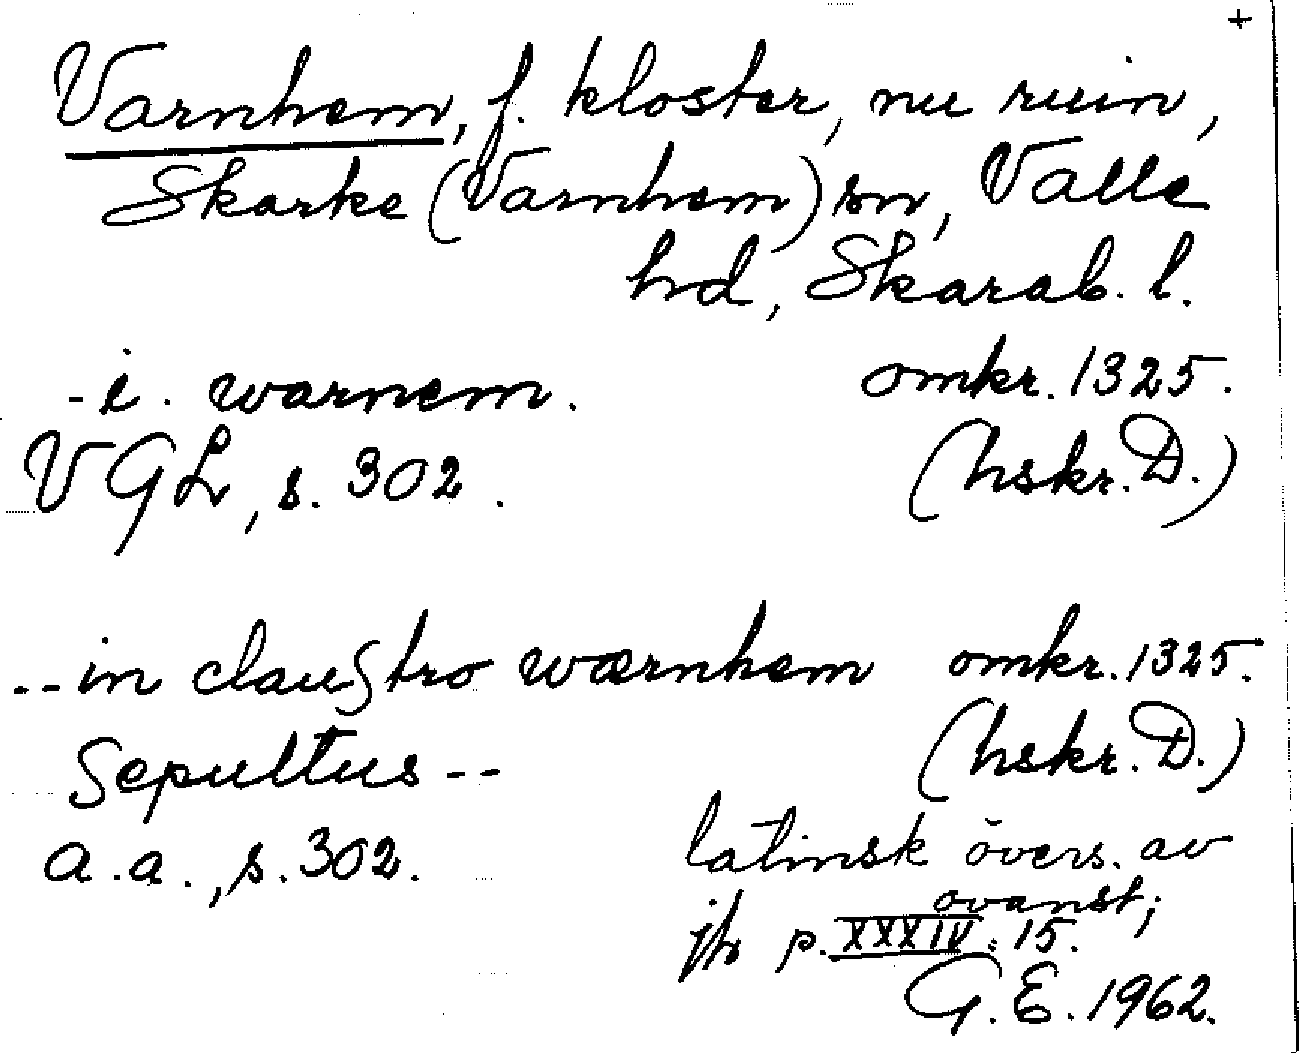 +
Varnhem, f. kloster, nu ruin,
Skarke (Varnhem) sn, Valle
hd, Skarab. l.
- i. warnem. omkr. 1325.
VGL, s. 302. (hskr. D.)
-- in claustro wærnhem omkr. 1325.
Sepultus -- (hskr. D.)
a.a., s. 302. latinsk övers. av
ovanst;
jfr p. XXXIV: 15.
G. E. 1962.